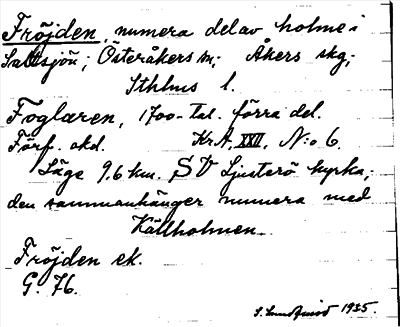 Fröjden, numera del av holme i
Saltsjön; Österåkers sn; Åkers skg;
Sthlms l.
Foglaren, 1700-tal. förra del.
Förf. okd. KrA. XXII. N:o 6.
Läge 9,6 km. SV Ljusterö kyrka;
den sammanhänger numera med
Källholmen.
Fröjden ek.
G. 76.
S. Lundqvist 1935.